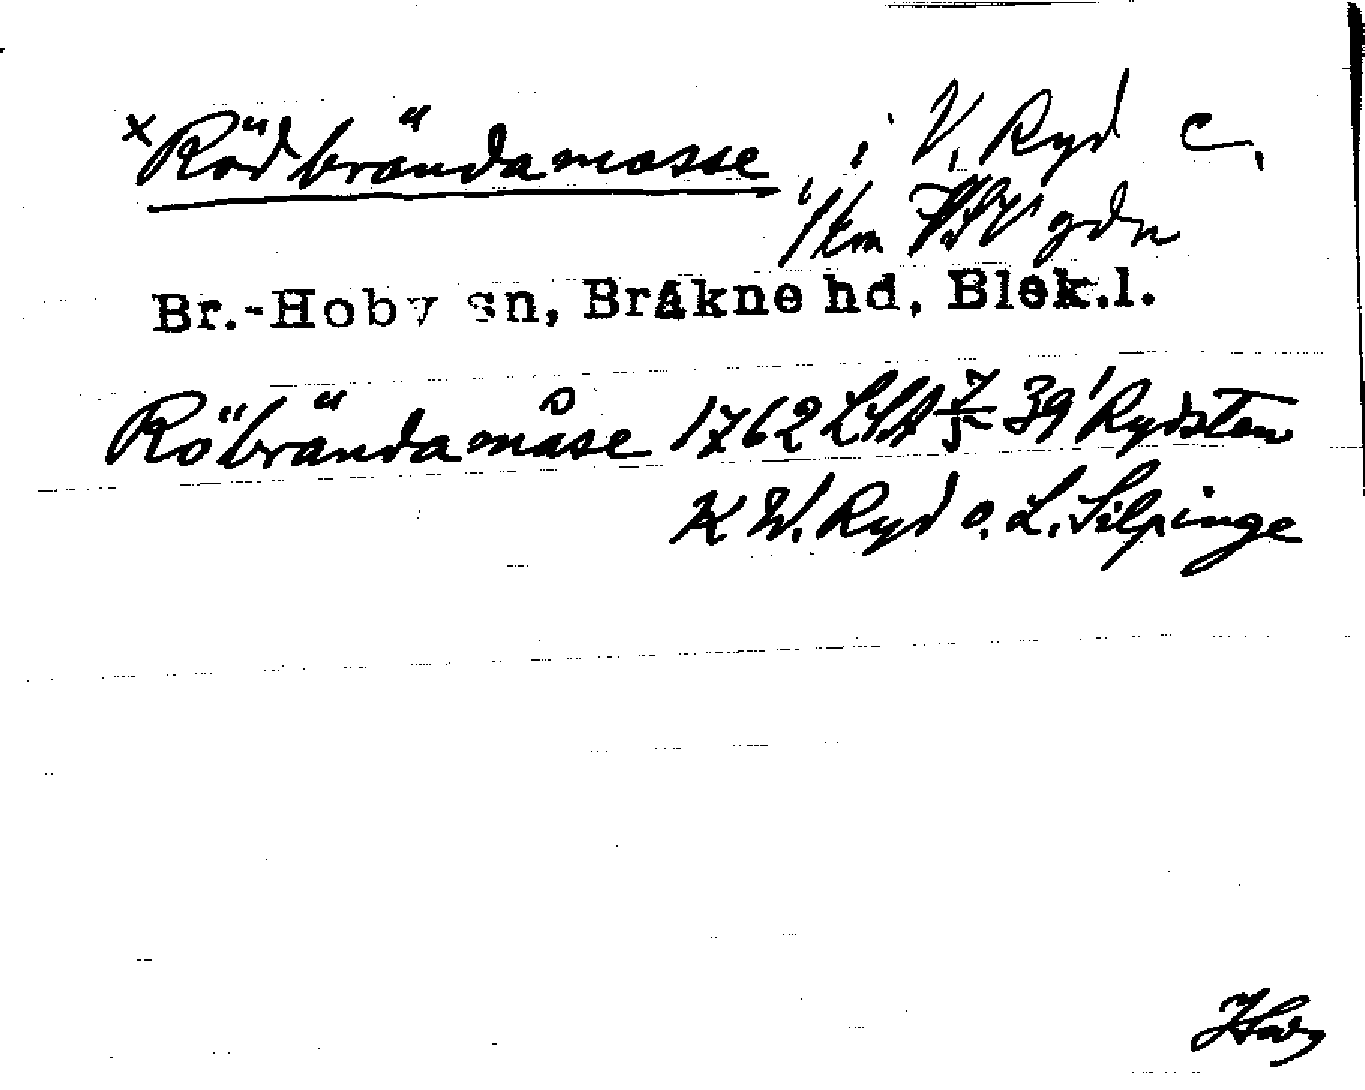 × Rödbrändamosse, i V. Ryd c.
1 km gdn
Br.-Hoby sn, Bräkne hd, Blek.l.
Röbrändamåse 1762 LSA 39 Rydsten
K W. Ryd o. L. Silpinge